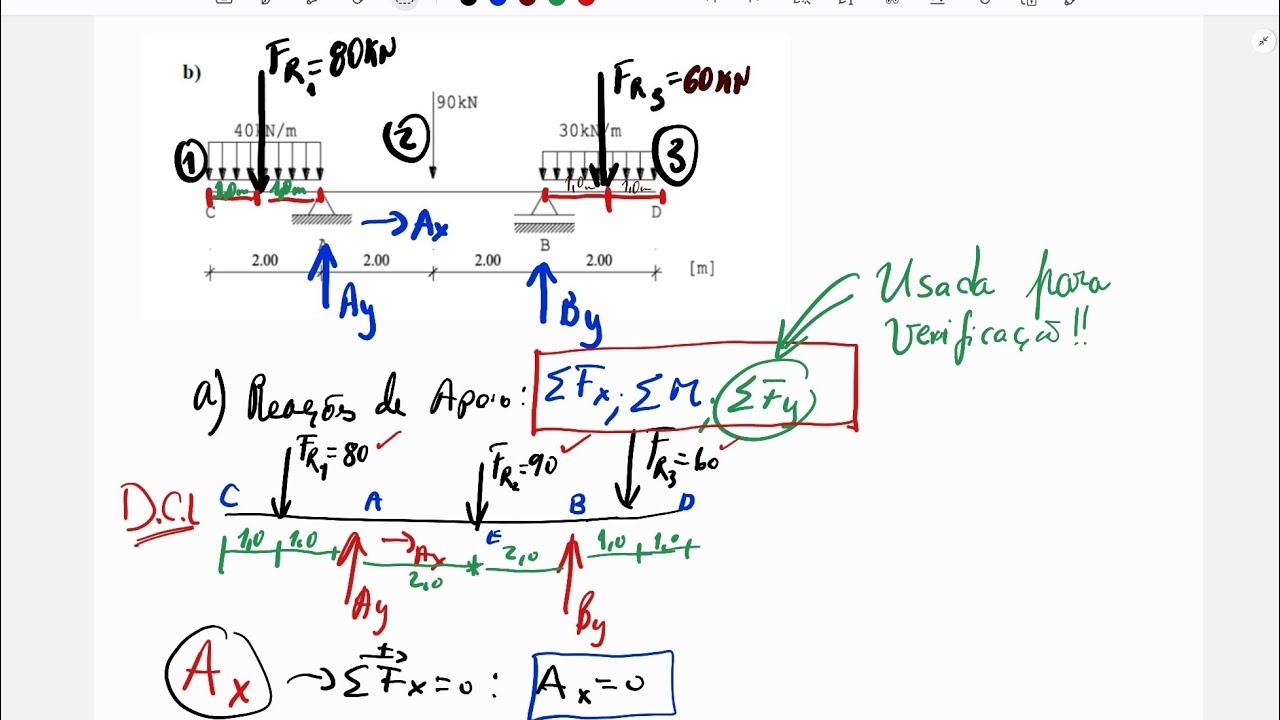 b)
F_R1 = 80KN
F_R3 = 60KN
90kN
40kN/m
30kN/m
1
2
3
1,0m 1,0m
1,0m 1,0m
C
D
→Ax
A
B
2.00 2.00 2.00 2.00 [m]
Ay
By
Usada para
verificação!!
a) Reações de Apoio: ΣFx; ΣM; ΣFy
F_R1=80
F_R2=90
F_R3=60
D.C.L
C A B D
E
1,0 1,0 →Ax 2,0 2,0 1,0 1,0
Ay
By
Ax → ΣFx=0: Ax=0
+